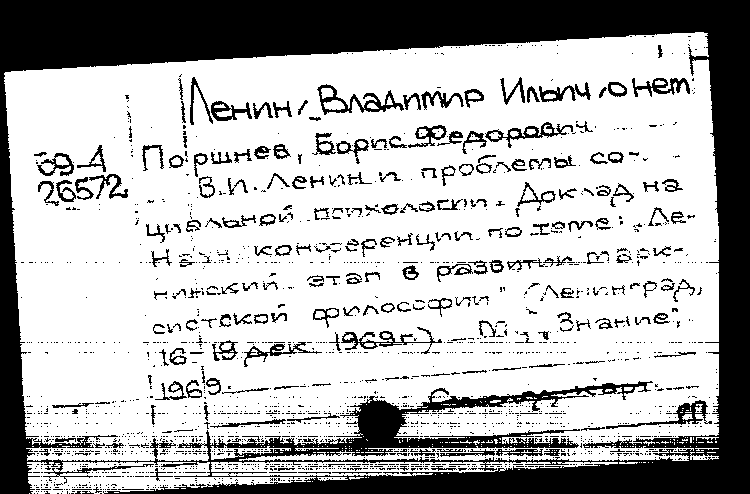 Ленин, Владимир Ильич, о нем
69-4 Поршнев, Борис Федорович
26572 В.И. Ленин и проблемы со-
циальной психологии. Доклад на
Науч. конференции по теме: „Ле-
нинский этап в развитии марк-
систской философии" (Ленинград,
16-19 дек. 1969 г.). "Знание",
1969.
карт.